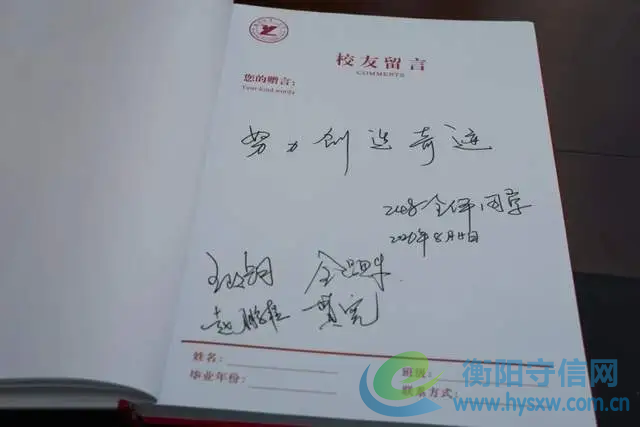 校友留言
COMMENTS
您的赠言:
Your kind words
努力创造奇迹
2408全体同学
2020年8月11日
赵鹏程
姓名:
班级:
毕业年份:
联系方式:
衡阳守信网
www.hysxw.com.cn